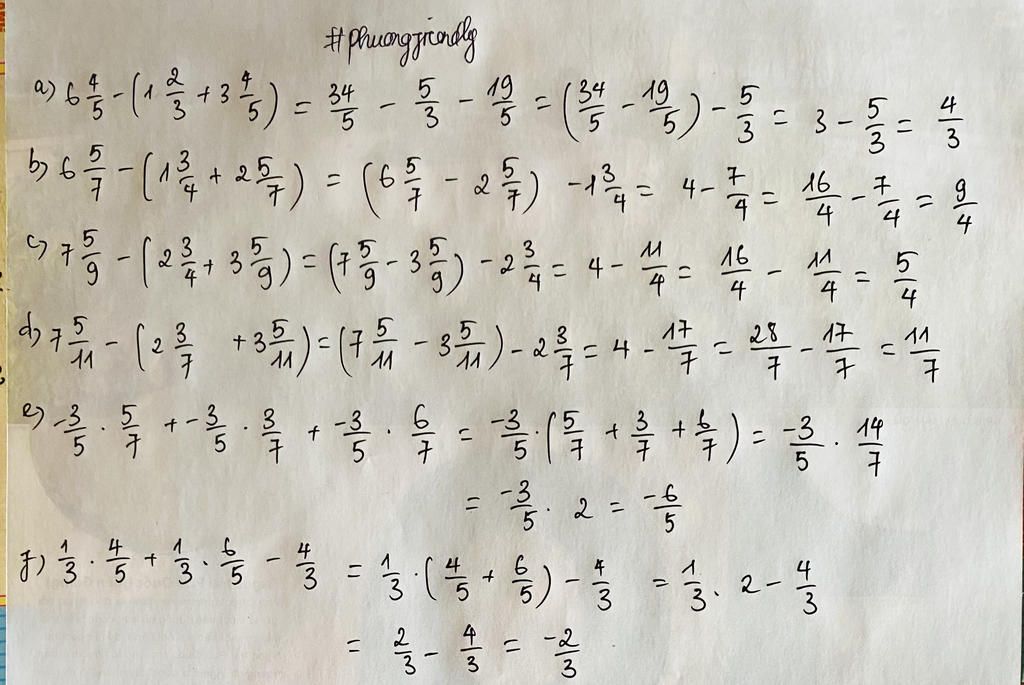 #phuongfriendly
a) 6 4/5 - (1 2/3 + 3 4/5) = 34/5 - 5/3 - 19/5 = (34/5 - 19/5) - 5/3 = 3 - 5/3 = 4/3
b) 6 5/7 - (1 3/4 + 2 5/7) = (6 5/7 - 2 5/7) - 1 3/4 = 4 - 7/4 = 16/4 - 7/4 = 9/4
c) 7 5/9 - (2 3/4 + 3 5/9) = (7 5/9 - 3 5/9) - 2 3/4 = 4 - 11/4 = 16/4 - 11/4 = 5/4
d) 7 5/11 - (2 3/7 + 3 5/11) = (7 5/11 - 3 5/11) - 2 3/7 = 4 - 17/7 = 28/7 - 17/7 = 11/7
e) -3/5 . 5/7 + -3/5 . 3/7 + -3/5 . 6/7 = -3/5 . (5/7 + 3/7 + 6/7) = -3/5 . 14/7
= -3/5 . 2 = -6/5
f) 1/3 . 4/5 + 1/3 . 6/5 - 4/3 = 1/3 . (4/5 + 6/5) - 4/3 = 1/3 . 2 - 4/3
= 2/3 - 4/3 = -2/3